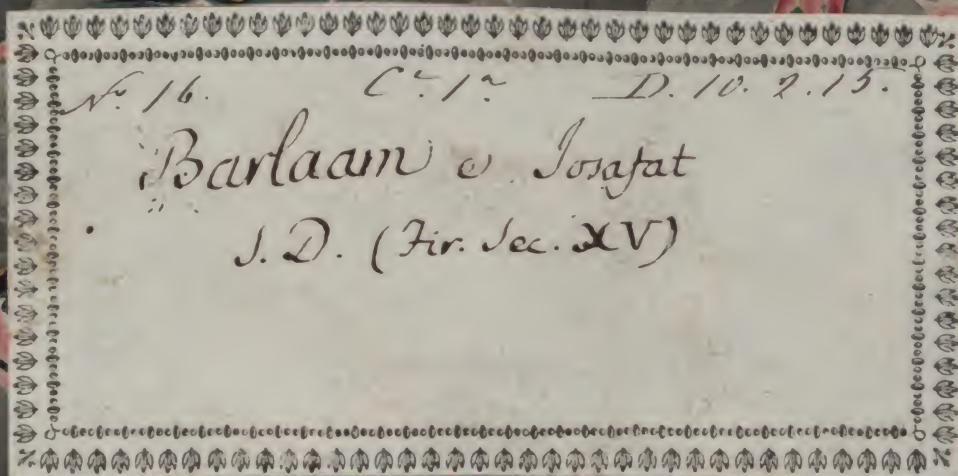 No. 16. Ca. 1a. D. 10. 2. 15.
Barlaam e Iosafat
S. D. (Fir. Sec. XV)